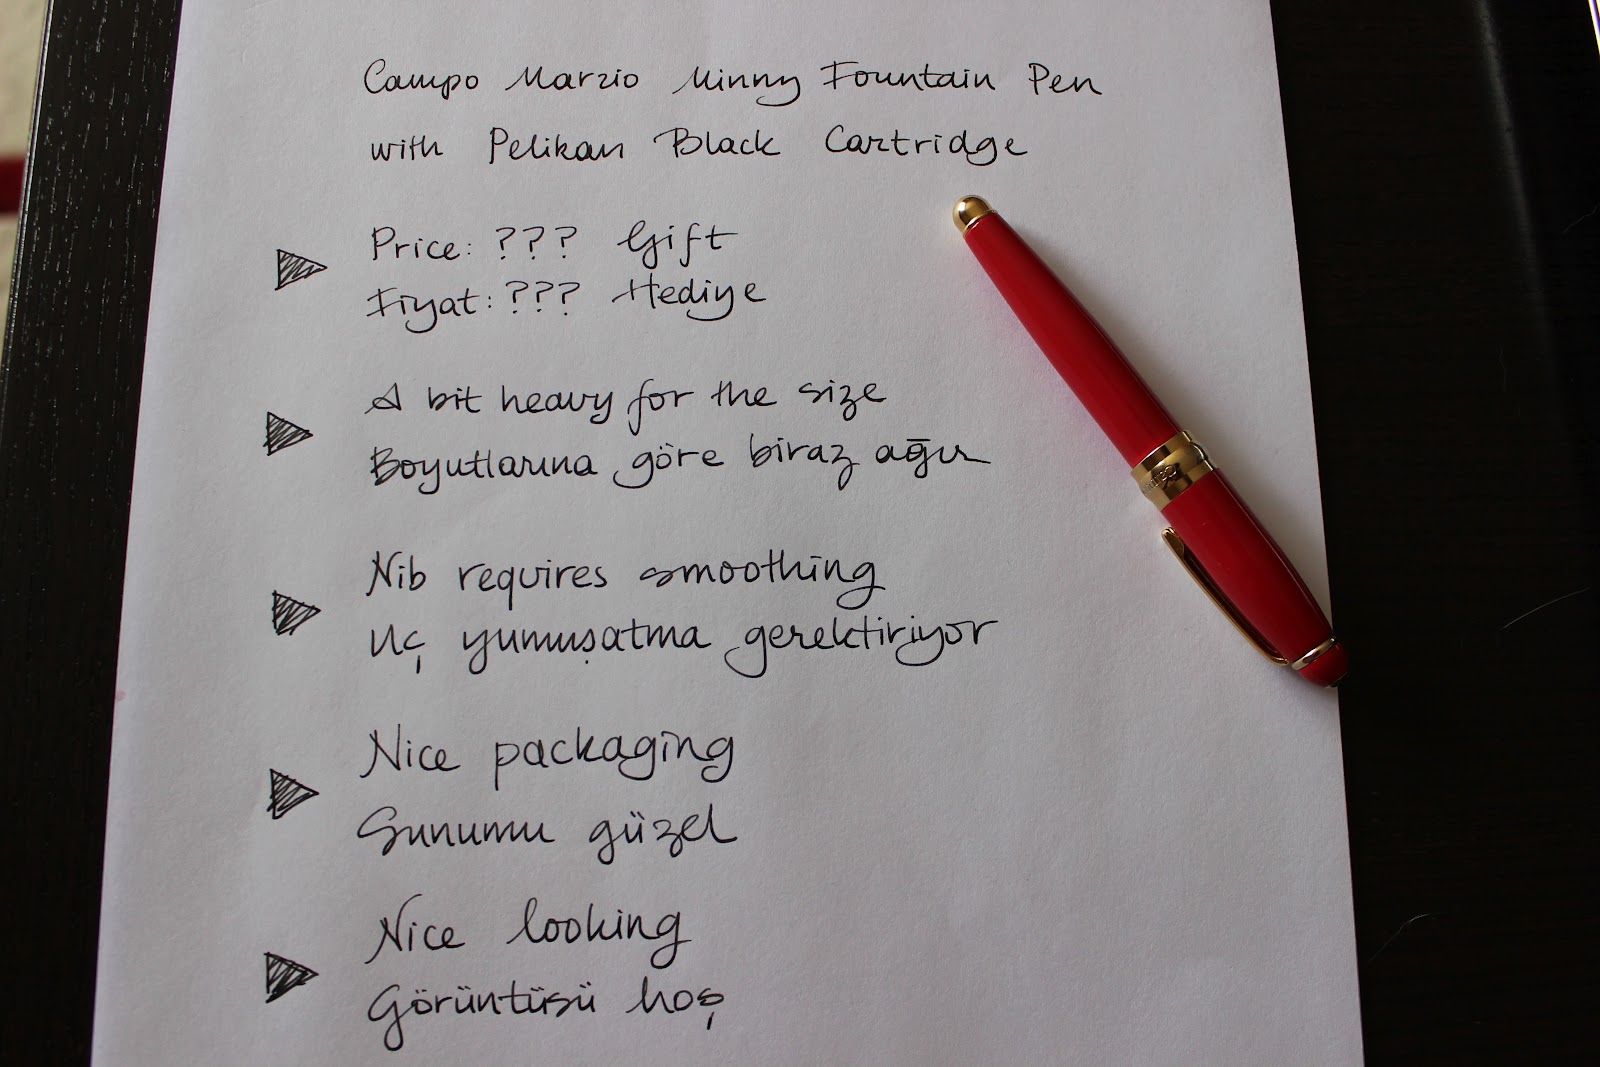 Campo Marzio Minny Fountain Pen
with Pelikan Black Cartridge
Price: ??? Gift
Fiyat: ??? Hediye
A bit heavy for the size
Boyutlarına göre biraz ağır
Nib requires smoothing
Uç yumuşatma gerektiriyor
Nice packaging
Sunumu güzel
Nice looking
Görüntüsü hoş